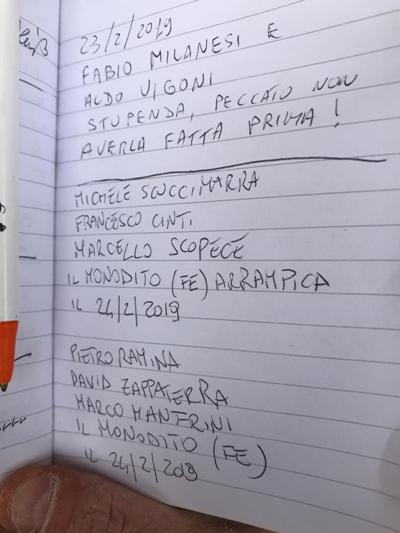 23/2/2019
FABIO MILANESI E
ALDO VIGONI
STUPENDA, PECCATO NON
AVERLA FATTA PRIMA!
MICHELE SCUCCIMARRA
FRANCESCO CINTI
MARCELLO SCOPECE
IL MONODITO (FE) ARRAMPICA
IL 24/2/2019
PIETRO RAMINA
DAVID ZAPPATERRA
MARCO MANFRINI
IL MONODITO (FE)
IL 24/2/2019